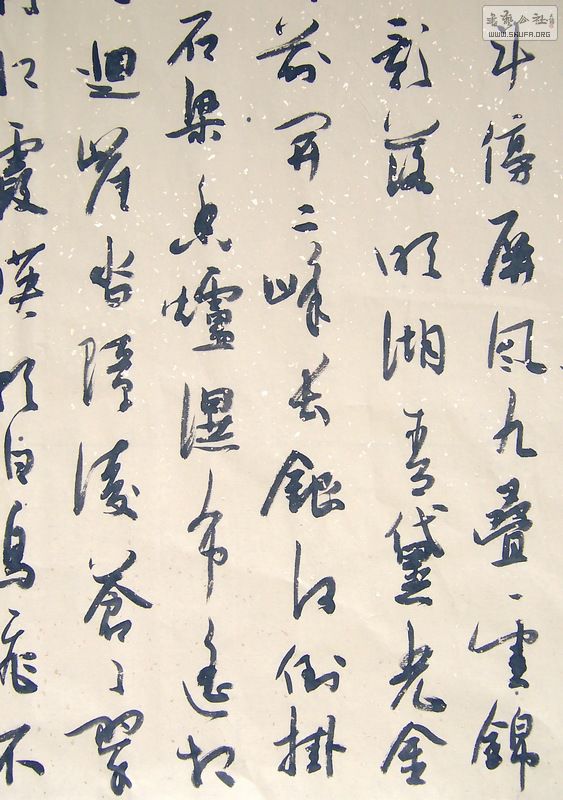 斗傍屏風九疊雲錦
影落明湖青黛光金
前開二峰長銀河倒掛
石梁香爐瀑布遥相
迴崖沓障凌蒼〻翠
紅霞映朝日鳥飛不
書藝公社
WWW.SHUFA.ORG